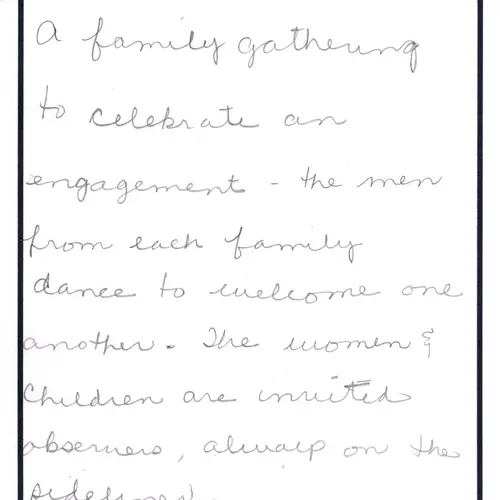 A family gathering
to celebrate an
engagement - the men
from each family
dance to welcome one
another. The women &
Children are invited
observers, always on the
sidelines.